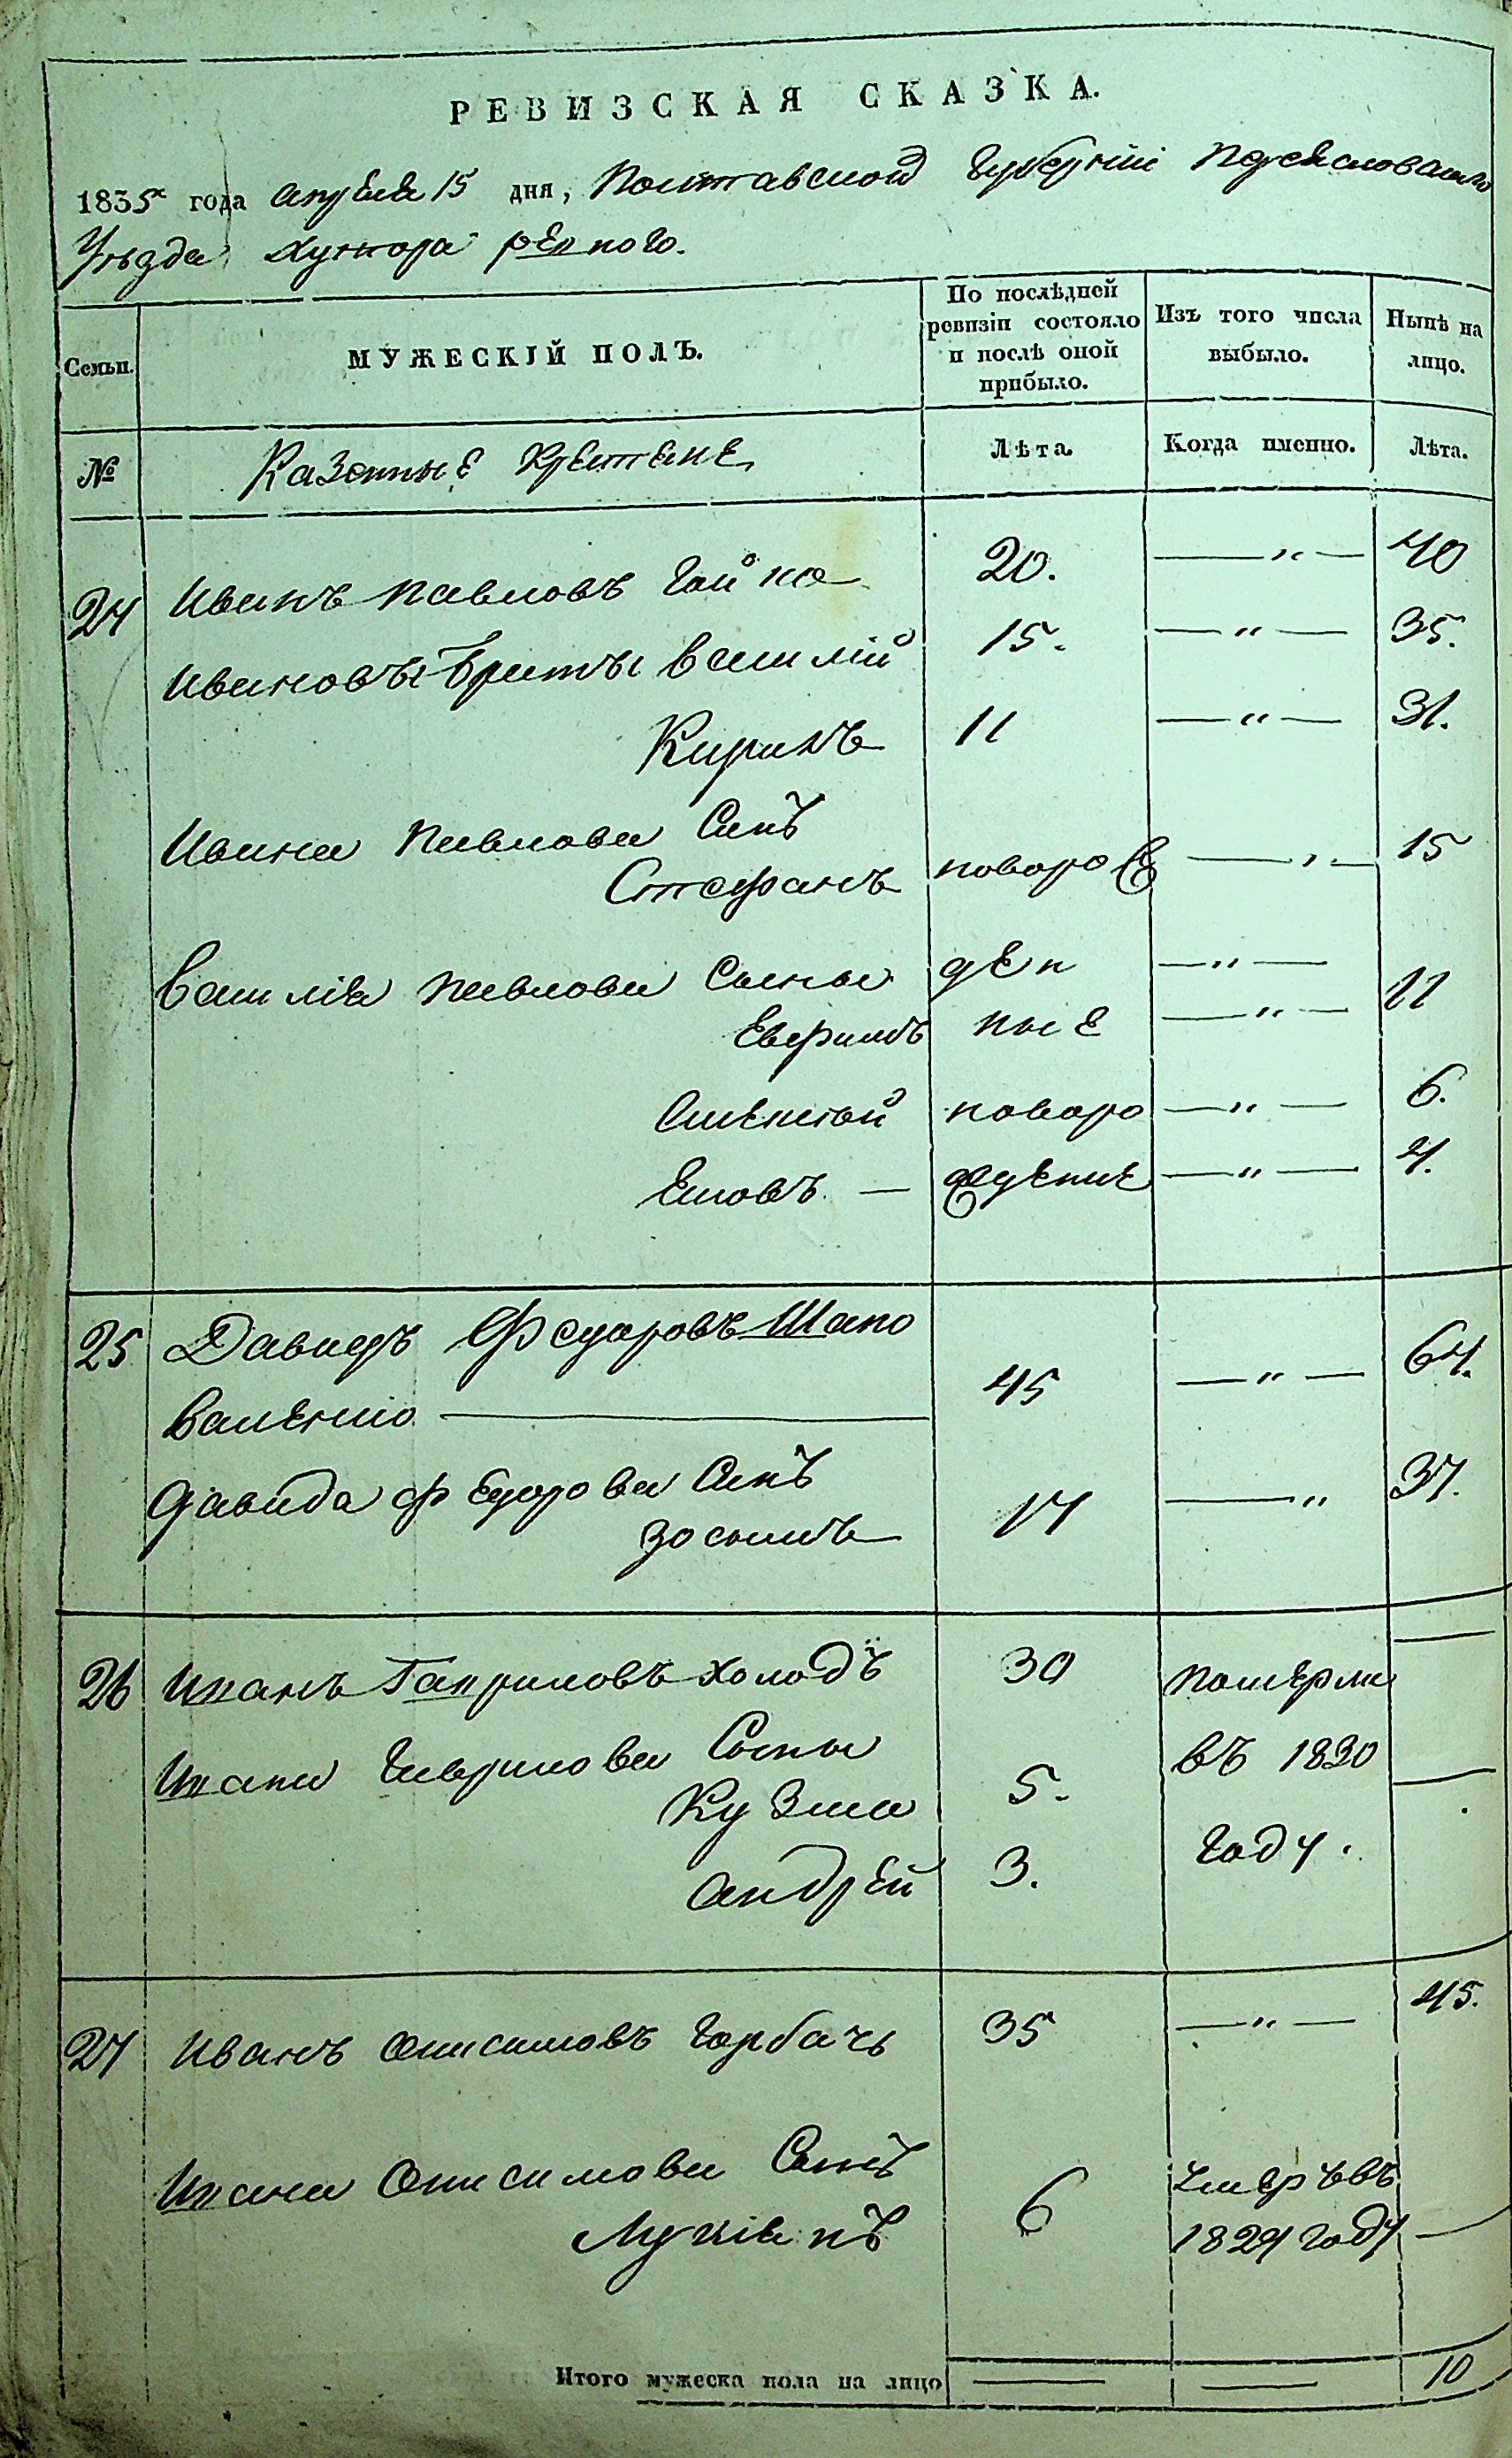 РЕВИЗСКАЯ СКАЗКА.
1835 года апреля 15 дня, Полтавской Губернiи
Уезда Хутора
Семьи. МУЖЕСКІЙ ПОЛЪ. По послѣдней ревизіи состояло и послѣ оной прибыло. Изъ того числа выбыло. Нынѣ на лицо.
№ Казенные Крестяне Лѣта. Когда именно. Лѣта.
24 Иванъ Павловъ Гайка 20. —"— 40
Ивановы Браты Василiй 15. —"— 35.
Кирикъ 11 —"— 31.
Ивана Павлова Синъ
Стефанъ новоро —"— 15
Василiя Павлова Сыны ден —"—
Евфимъ ные —"— 11
Алексѣй новоро —"— 6.
Яковъ — жденые —"— 4.
25 Давидъ Федоровъ Шапо
валенко — 45 —"— 64.
Давида Федорова Синъ
Зосимъ 17 —" 37.
26 Иванъ Гавриловъ Холодъ 30 Померли —
Ивана Гаврилова Сыны въ 1830
Кузма 5. —
Андрей 3. году.
27 Иванъ Онисимовъ Горбачь 35 —"— 45.
Ивана Онисимова Синъ умеръ въ
Лукiянъ 6 1829 году —
Итого мужеска пола на лицо — — 10